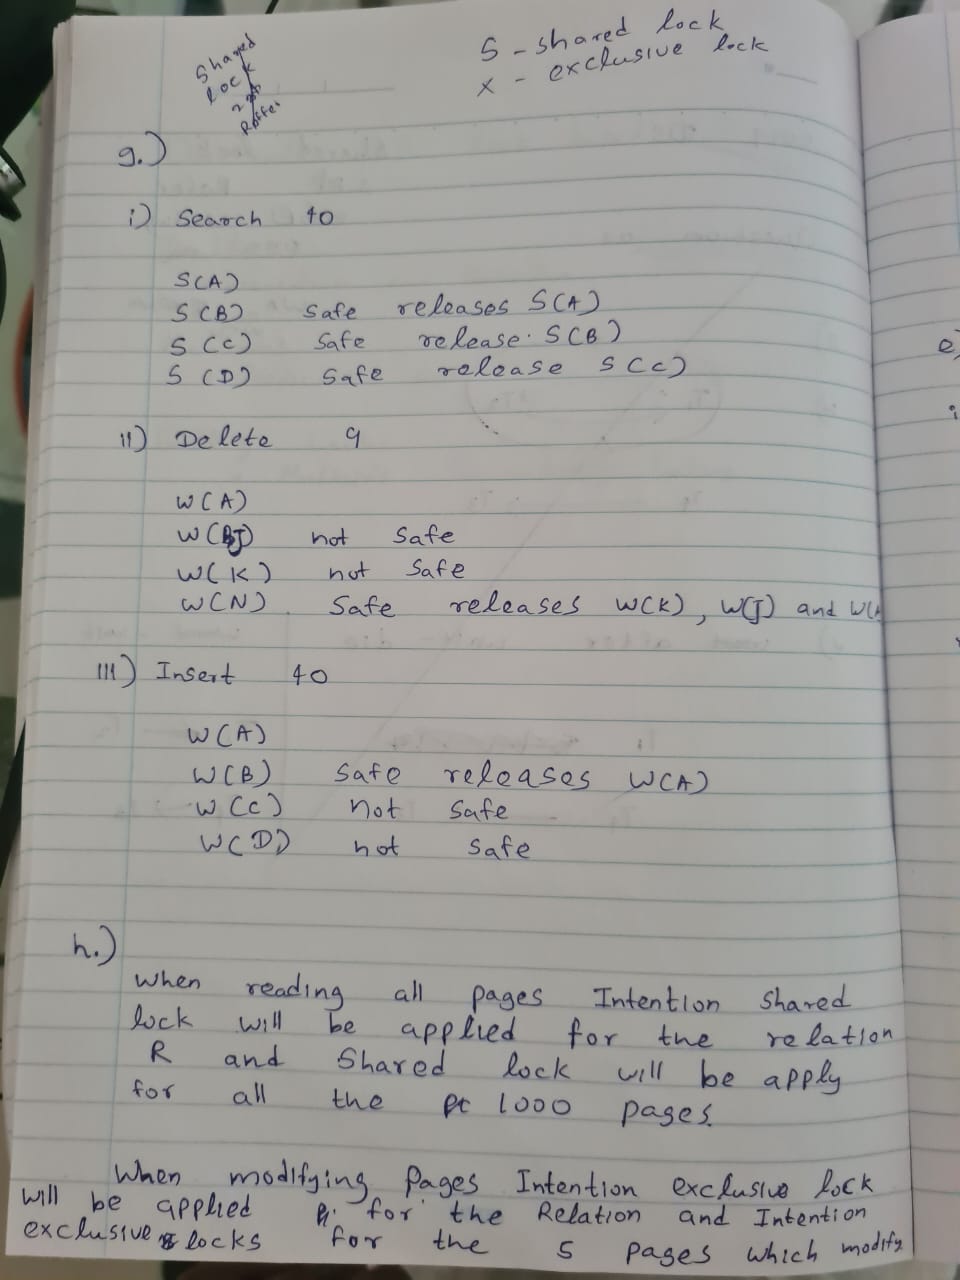 Shared
Lock
S - shared lock
x - exclusive lock
g.)
i) Search 40
S(A)
S(B) safe releases S(A)
S(C) safe release S(B)
S(D) safe release S(C)
ii) Delete 9
W(A)
W(J) not safe
W(K) not safe
W(N) Safe releases W(K), W(J) and W(
iii) Insert 40
W(A)
W(B) safe releases W(A)
W(C) not safe
W(D) not safe
h.)
When reading all pages Intention Shared
lock will be applied for the relation
R and Shared lock will be apply
for all the 1000 pages.
When modifying pages Intention exclusive lock
will be applied for the Relation and Intention
exclusive locks for the 5 pages which modify
e)